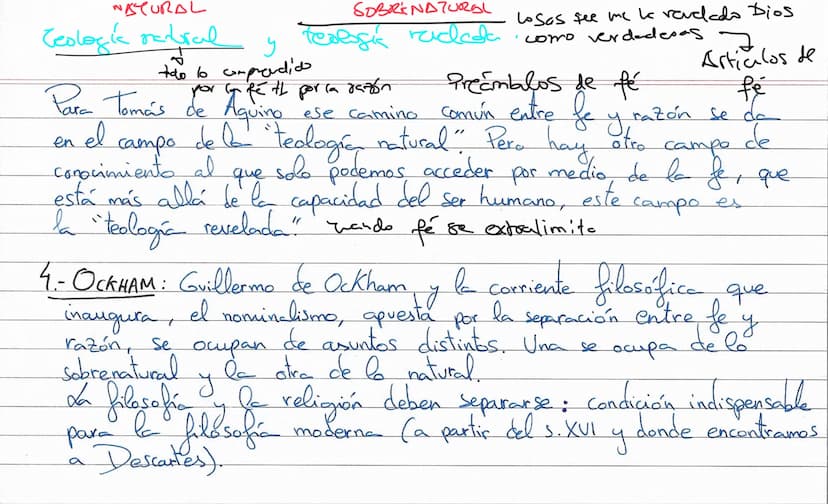 NATURAL SOBRENATURAL cosas que me ha revelado Dios
teología natural y teología revelada. como verdaderas → Artículos de fé
todo lo comprendido
por la fé por la razón Preámbulos de fé
Para Tomás de Aquino ese camino común entre fe y razón se da
en el campo de la "teología natural". Pero hay otro campo de
conocimiento al que solo podemos acceder por medio de la fe, que
está más allá de la capacidad del ser humano, este campo es
la "teología revelada". cuando fé se extralimita
4.- OCKHAM: Guillermo de Ockham y la corriente filosófica que
inaugura, el nominalismo, apuesta por la separación entre fe y
razón, se ocupan de asuntos distintos. Una se ocupa de lo
sobrenatural y la otra de lo natural.
La filosofía y la religión deben separarse: condición indispensable
para la filosofía moderna (a partir del s. XVI y donde encontramos
a Descartes).